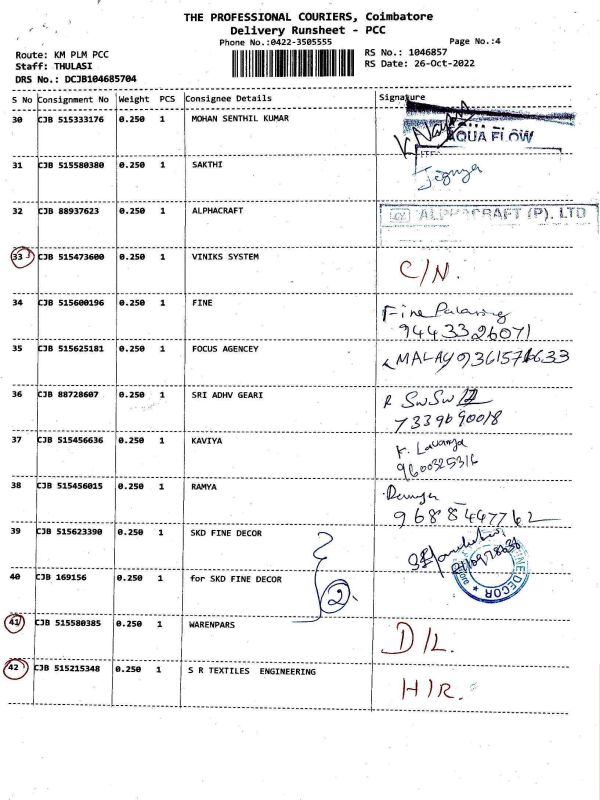 THE PROFESSIONAL COURIERS, Coimbatore
Delivery Runsheet - PCC
Phone No.:0422-3505555
Page No.:4
Route: KM PLM PCC
Staff: THULASI
DRS No.: DCJB104685704
RS No.: 1046857
RS Date: 26-Oct-2022
S No Consignment No Weight PCS Consignee Details Signature
30 CJB 515333176 0.250 1 MOHAN SENTHIL KUMAR
AQUA FLOW
31 CJB 515580380 0.250 1 SAKTHI
32 CJB 88937623 0.250 1 ALPHACRAFT
ALPHACRAFT (P). LTD
33 CJB 515473600 0.250 1 VINIKS SYSTEM C/N.
34 CJB 515600196 0.250 1 FINE Fine
9443326071
35 CJB 515625181 0.250 1 FOCUS AGENCEY MALAY
36 CJB 88728607 0.250 1 SRI ADHV GEARI
7339690018
37 CJB 515456636 0.250 1 KAVIYA K. Lavanya
9600325316
38 CJB 515456015 0.250 1 RAMYA
9688447762
39 CJB 515623390 0.250 1 SKD FINE DECOR
40 CJB 169156 0.250 1 for SKD FINE DECOR 2.
FINE DECOR
41 CJB 515580385 0.250 1 WARENPARS D/L.
42 CJB 515215348 0.250 1 S R TEXTILES ENGINEERING H/R.